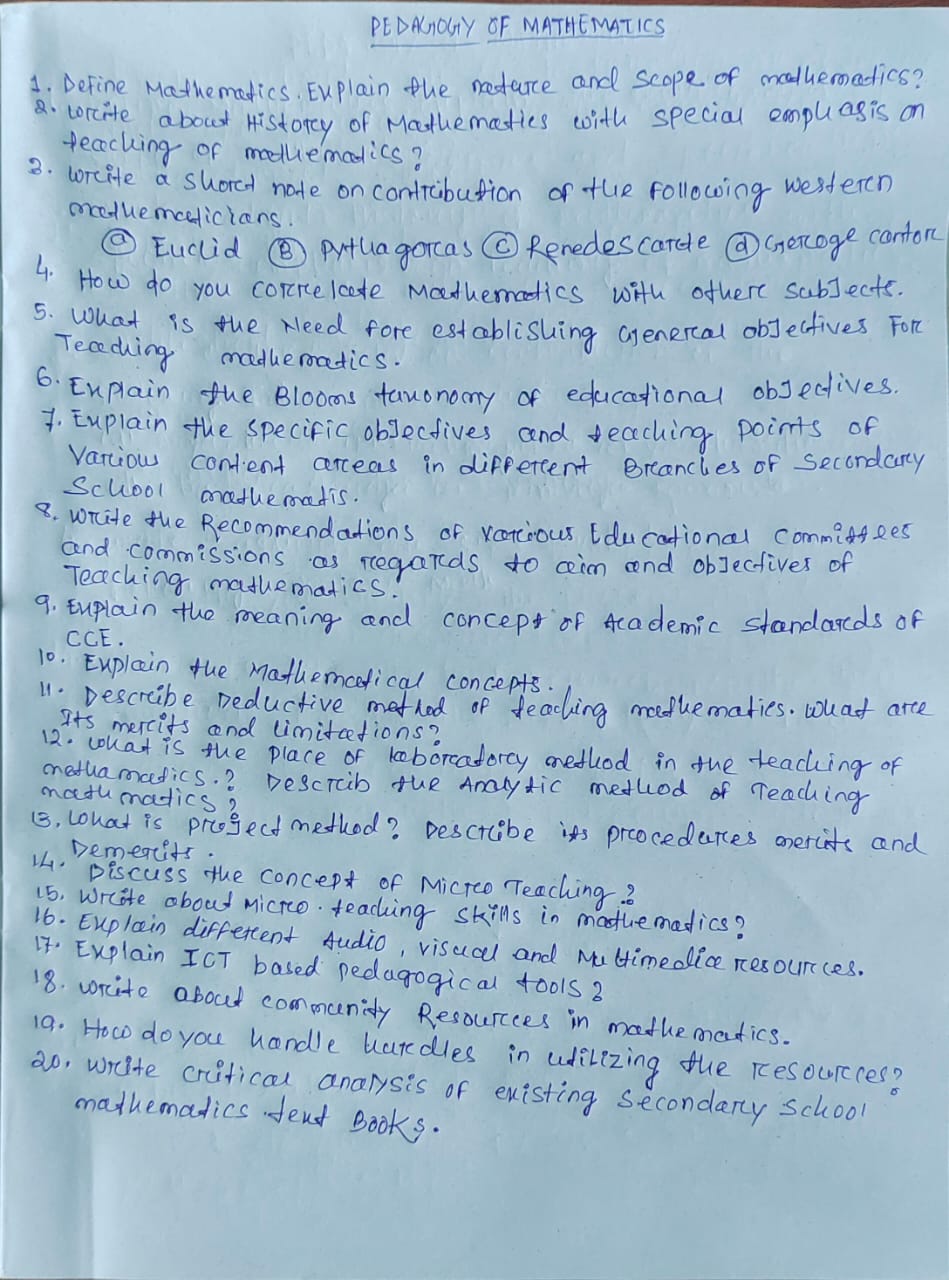 PEDAGOGY OF MATHEMATICS
1. Define Mathematics. Explain the nature and scope of mathematics?
2. Write about History of Mathematics with special emphasis on
teaching of mathematics?
3. Write a short note on contribution of the following western
mathematicians.
(a) Euclid (B) Pythagoras (C) Renedescarte (d) George cantor
4. How do you correlate Mathematics with other subjects.
5. What is the Need for establishing General objectives For
Teaching mathematics.
6. Explain the Blooms taxonomy of educational objectives.
7. Explain the specific objectives and teaching points of
Various content areas in different Branches of Secondary
School mathematis.
8. Write the Recommendations of various Educational Committees
and commissions as regards to aim and objectives of
Teaching mathematics.
9. Explain the meaning and concept of Academic standards of
CCE.
10. Explain the Mathematical concepts.
11. Describe Deductive method of teaching mathematics. What are
Its merits and limitations?
12. What is the place of laboratory method in the teaching of
methamatics.? Describ the Analytic method of Teaching
mathmatics?
13. What is project method? Describe its procedures merits and
Demerits.
14. Discuss the concept of Micro Teaching?
15. Write about Micro-teaching skills in mathematics?
16. Explain different Audio, visual and Multimedia resources.
17. Explain ICT based pedagogical tools?
18. write about community Resources in mathematics.
19. How do you handle hurdles in utilizing the resources?
20. Write critical analysis of existing Secondary School
mathematics text Books.